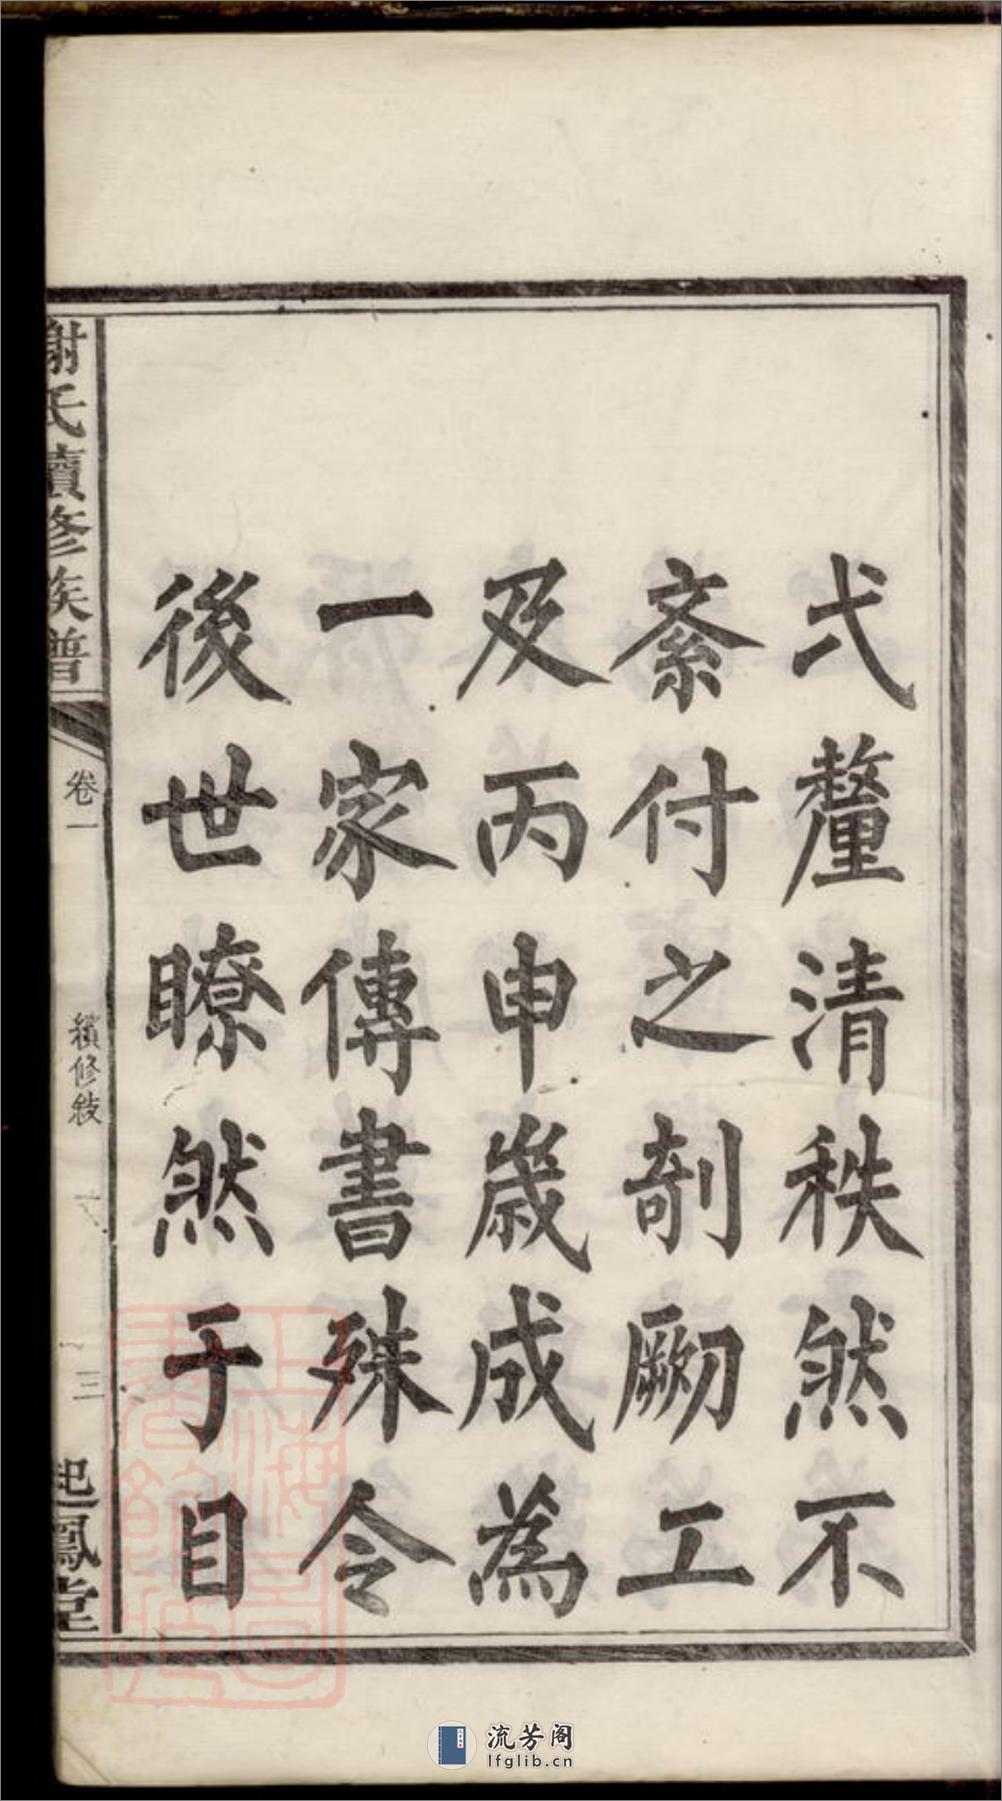 弍釐清秩然不
紊付之剞劂工
及丙申歲成為
一家傳書殊令
後世瞭然于目
謝氏續修族譜
卷一
續修
三
起鳳堂
上海圖書館藏
流芳阁
lfglib.cn